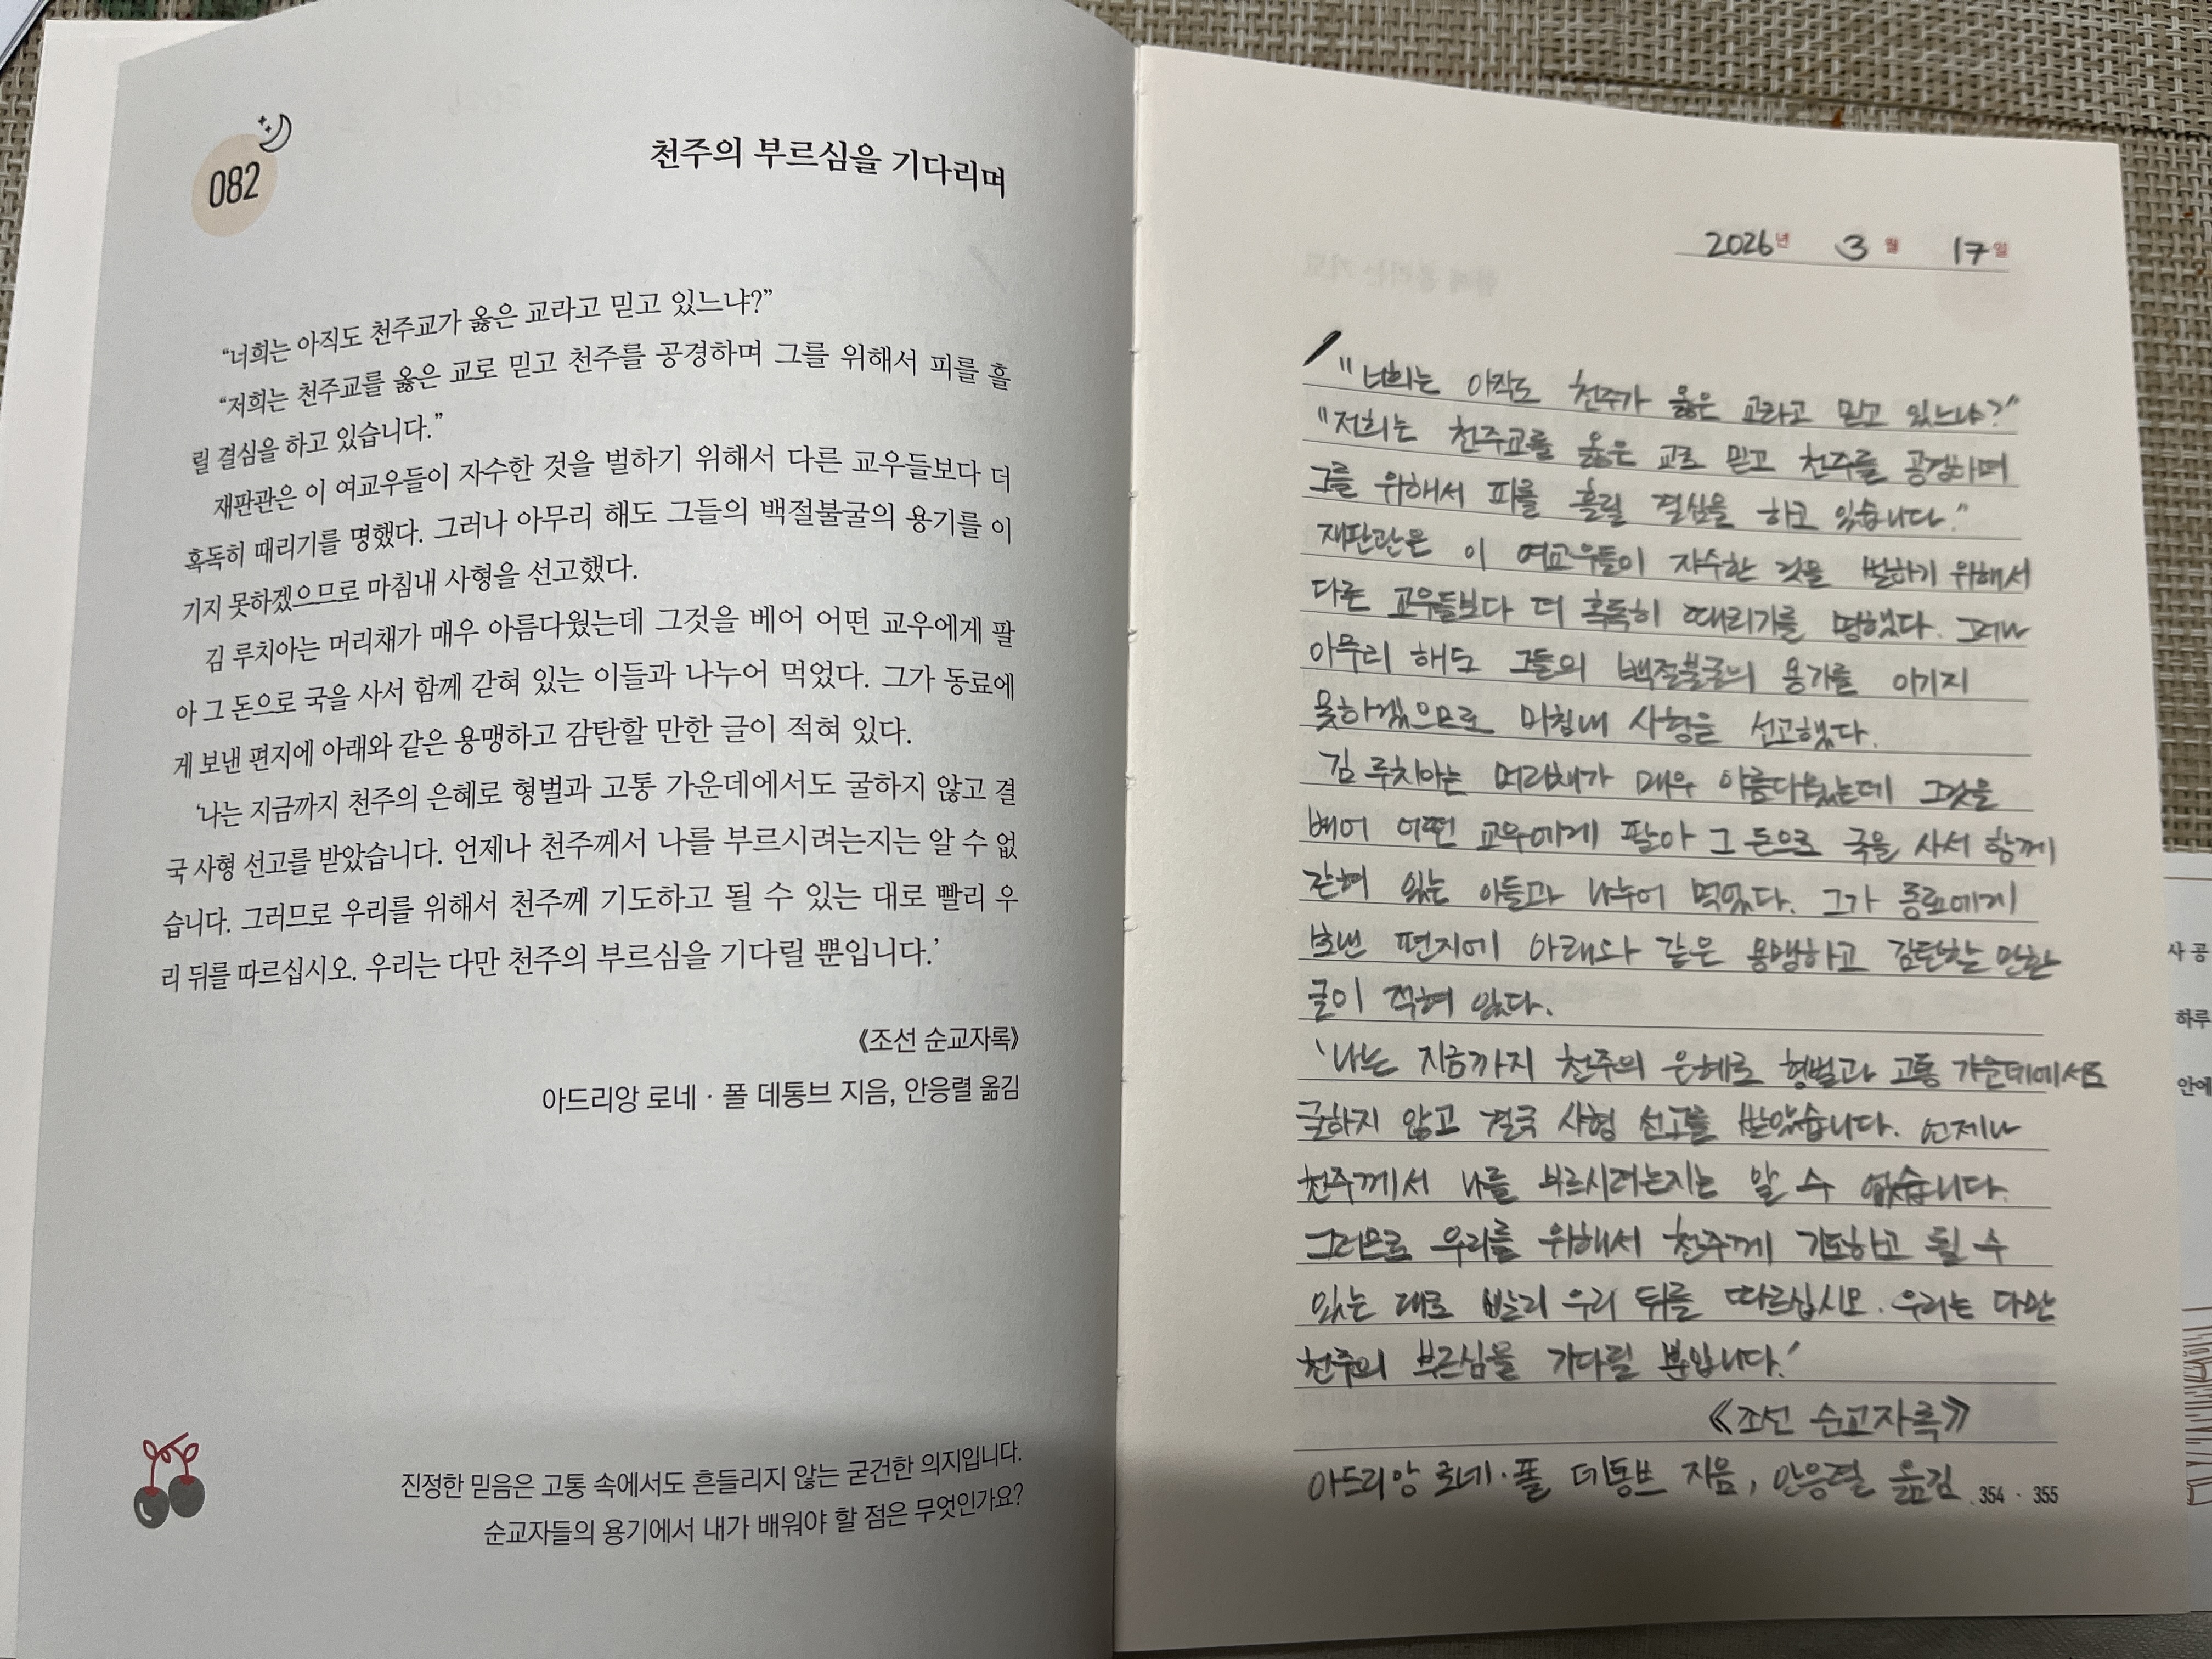 082
천주의 부르심을 기다리며
“너희는 아직도 천주교가 옳은 교라고 믿고 있느냐?”
“저희는 천주교를 옳은 교로 믿고 천주를 공경하며 그를 위해서 피를 흘
릴 결심을 하고 있습니다.”
재판관은 이 여교우들이 자수한 것을 벌하기 위해서 다른 교우들보다 더
혹독히 때리기를 명했다. 그러나 아무리 해도 그들의 백절불굴의 용기를 이
기지 못하겠으므로 마침내 사형을 선고했다.
김 루치아는 머리채가 매우 아름다웠는데 그것을 베어 어떤 교우에게 팔
아 그 돈으로 국을 사서 함께 갇혀 있는 이들과 나누어 먹었다. 그가 동료에
게 보낸 편지에 아래와 같은 용맹하고 감탄할 만한 글이 적혀 있다.
‘나는 지금까지 천주의 은혜로 형벌과 고통 가운데에서도 굴하지 않고 결
국 사형 선고를 받았습니다. 언제나 천주께서 나를 부르시려는지는 알 수 없
습니다. 그러므로 우리를 위해서 천주께 기도하고 될 수 있는 대로 빨리 우
리 뒤를 따르십시오. 우리는 다만 천주의 부르심을 기다릴 뿐입니다.’
《조선 순교자록》
아드리앙 로네 · 폴 데통브 지음, 안응렬 옮김
진정한 믿음은 고통 속에서도 흔들리지 않는 굳건한 의지입니다.
순교자들의 용기에서 내가 배워야 할 점은 무엇인가요?
2026년 3월 17일
"너희는 아직도 천주가 옳은 교라고 믿고 있느냐?"
"저희는 천주교를 옳은 교로 믿고 천주를 공경하며
그를 위해서 피를 흘릴 결심을 하고 있습니다."
재판관은 이 여교우들이 자수한 것을 벌하기 위해서
다른 교우들보다 더 혹독히 때리기를 명했다. 그러나
아무리 해도 그들의 백절불굴의 용기를 이기지
못하겠으므로 마침내 사형을 선고했다.
김 루치아는 머리채가 매우 아름다웠는데 그것을
베어 어떤 교우에게 팔아 그 돈으로 국을 사서 함께
갇혀 있는 이들과 나누어 먹었다. 그가 동료에게
보낸 편지에 아래와 같은 용맹하고 감탄할 만한
글이 적혀 있다.
'나는 지금까지 천주의 은혜로 형벌과 고통 가운데에서도
굴하지 않고 결국 사형 선고를 받았습니다. 언제나
천주께서 나를 부르시려는지는 알 수 없습니다.
그러므로 우리를 위해서 천주께 기도하고 될 수
있는 대로 빨리 우리 뒤를 따르십시오. 우리는 다만
천주의 부르심을 기다릴 뿐입니다.'
《조선 순교자록》
아드리앙 로네·폴 데통브 지음, 안응렬 옮김
354 · 355
사 공
하루
안에